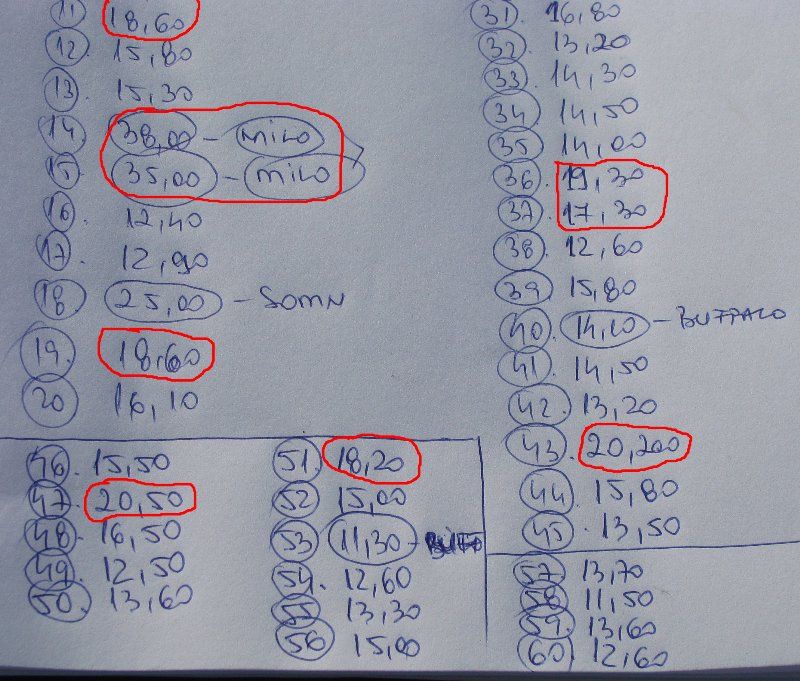 11. 18,60
12. 15,80
13. 15,30
14. 38,00 - MILO
15. 35,00 - MILO
16. 12,40
17. 12,90
18. 25,00 - SOMN
19. 18,60
20. 16,10
31. 16,80
32. 13,20
33. 14,30
34. 14,50
35. 14,00
36. 19,30
37. 17,30
38. 12,60
39. 15,80
40. 14,10 - BUFFALO
41. 14,50
42. 13,20
43. 20,200
44. 15,80
45. 13,50
46. 15,50
47. 20,50
48. 16,50
49. 12,50
50. 13,60
51. 18,20
52. 15,00
53. 11,30 -
54. 12,60
55. 13,30
56. 15,00
57. 13,70
58. 11,50
59. 13,60
60. 12,60